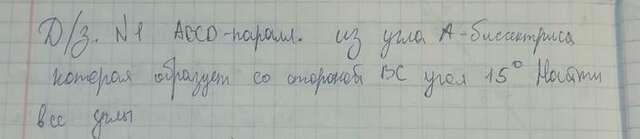 Д/з. №1 ABCD-паралл. из угла A-биссектриса
которая образует со стороной BC угол 15° Найти
все углы